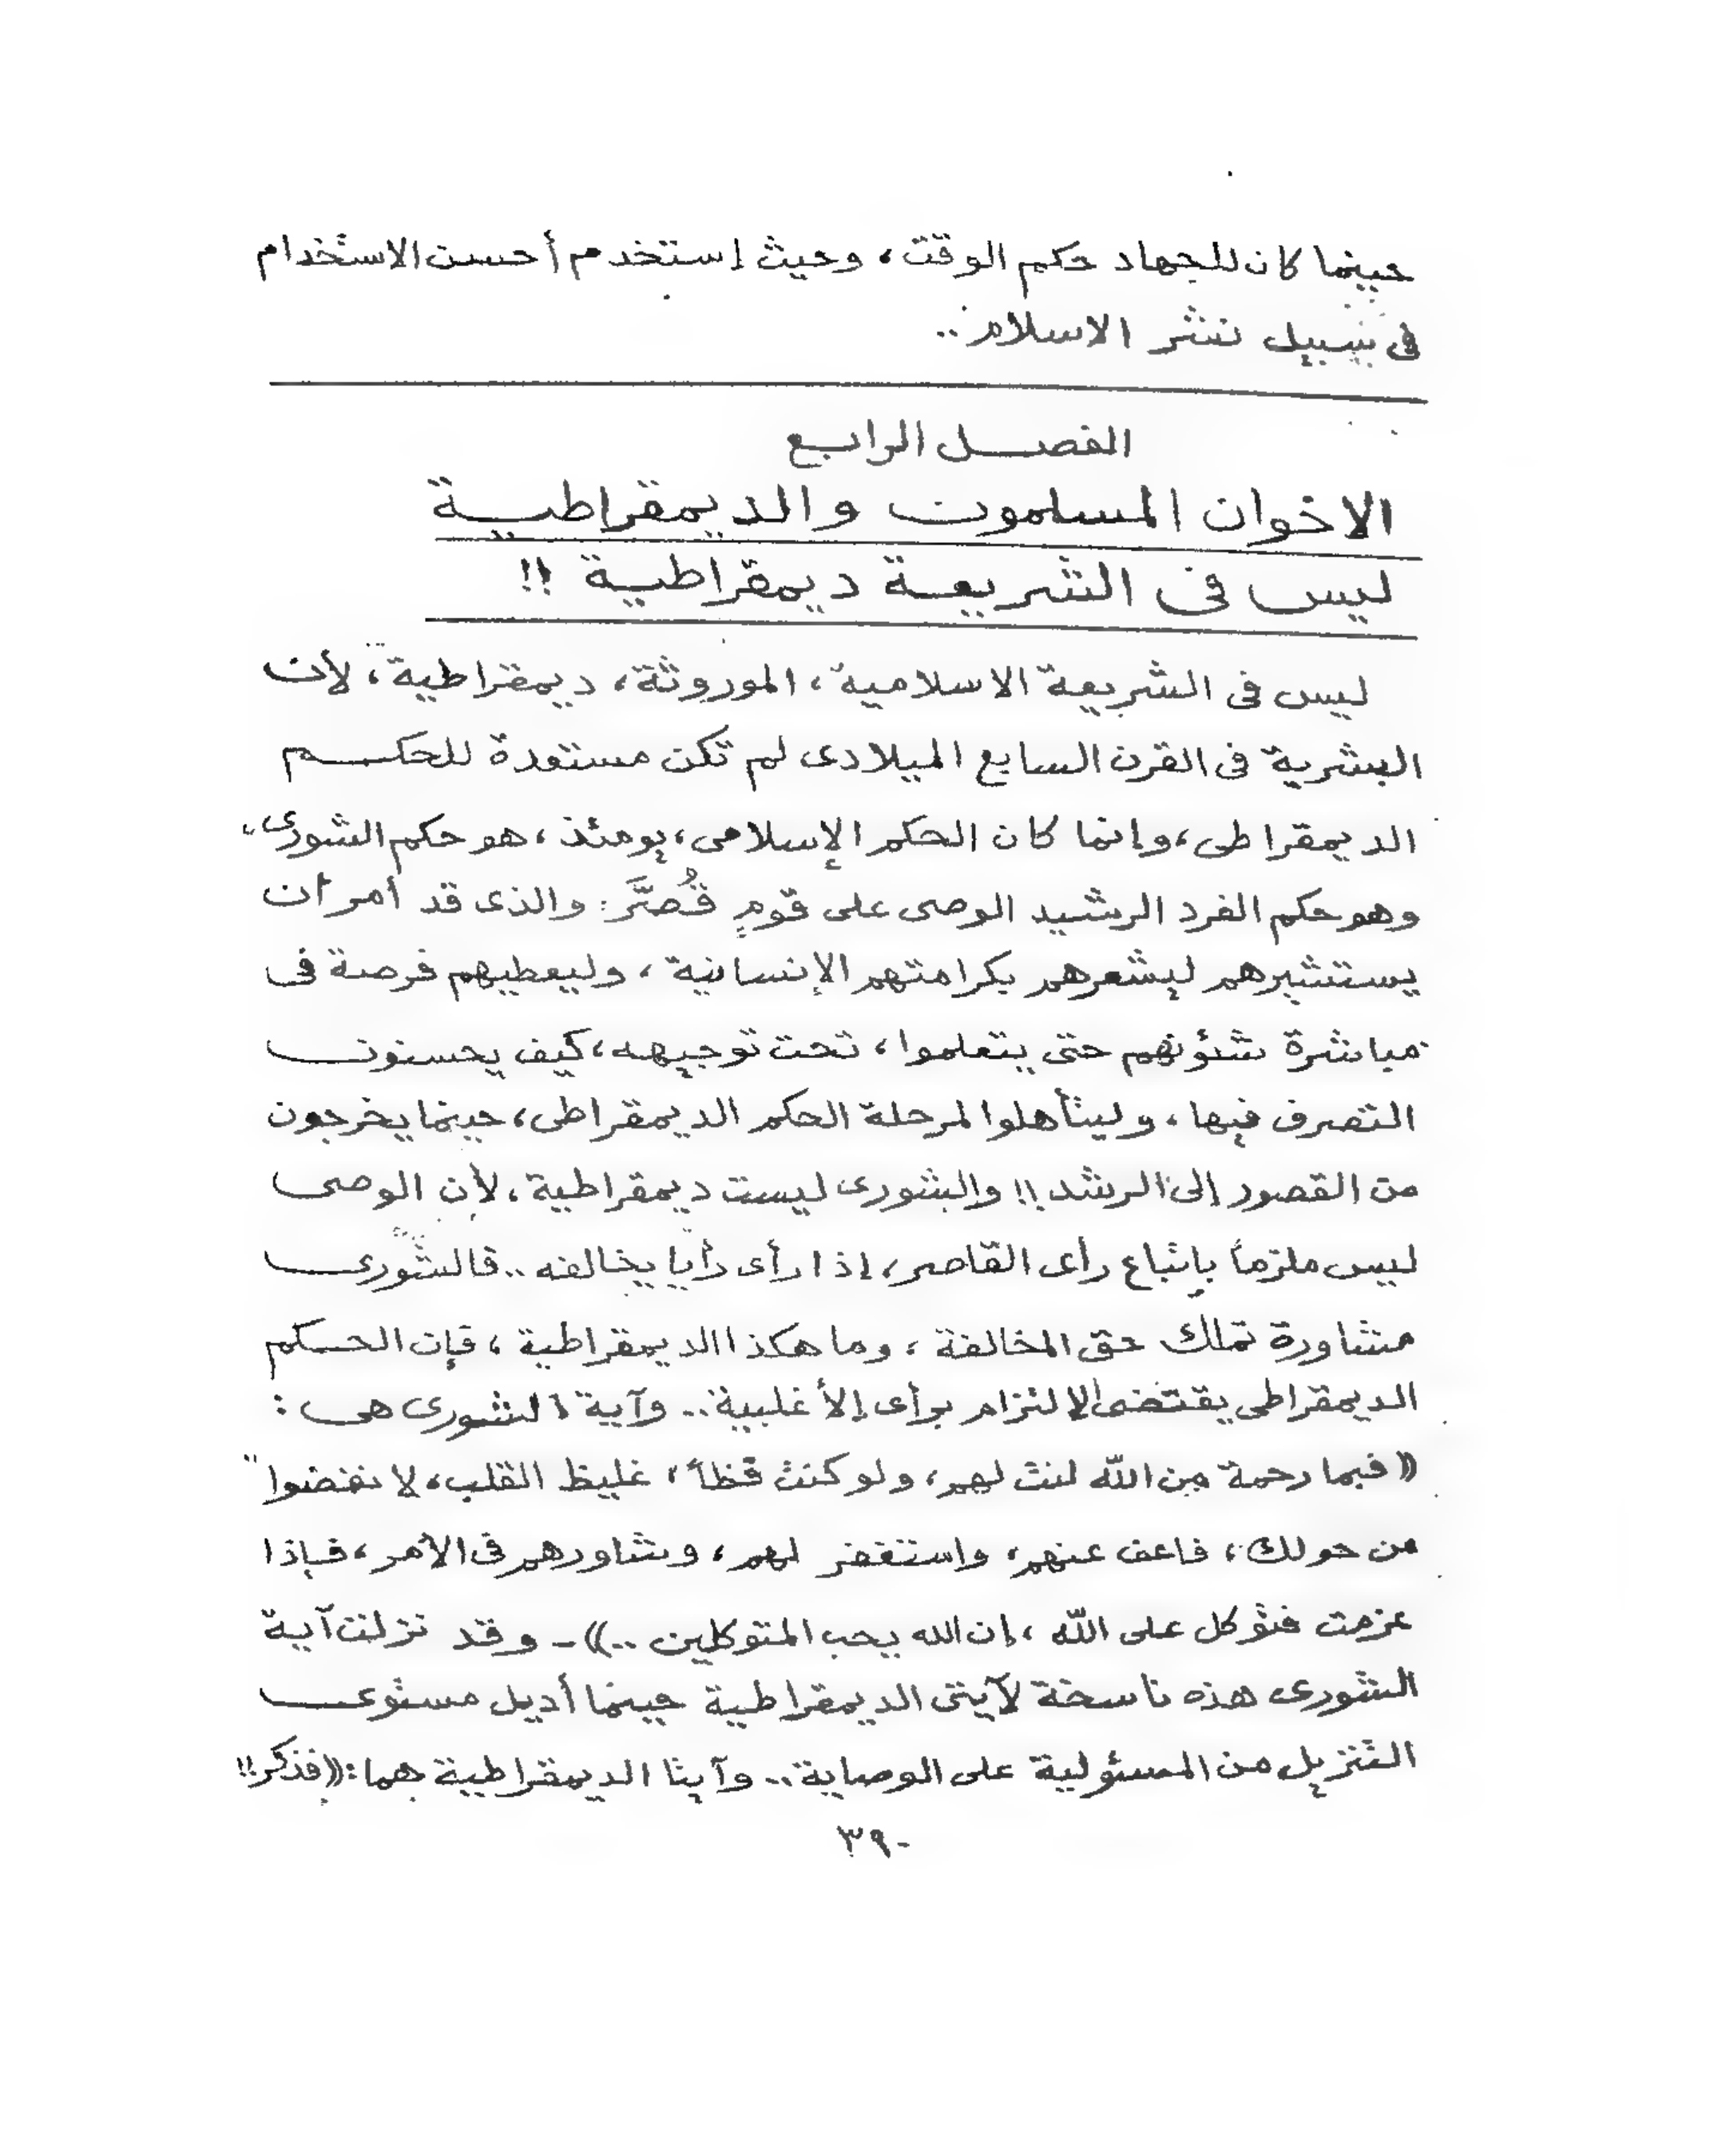 حينما كان للجهاد حكم الوقت، وحيث إستخدم أحسن الاستخدام
فى سبيل نشر الاسلام..
الفصل الرابع
الاخوان المسلمون والديمقراطية
ليس فى الشريعة ديمقراطية !!
ليس فى الشريعة الاسلامية، الموروثة، ديمقراطية، لأن
البشرية فى القرن السابع الميلادى لم تكن مستعدة للحكم
الديمقراطى، وإنما كان الحكم الإسلامى، يومئذ، هو حكم الشورى،
وهو حكم الفرد الرشيد الوصى على قومٍ قُصَّر: والذى قد أمر أن
يستشيرهم ليشعرهم بكرامتهم الإنسانية، وليعطيهم فرصة فى
مباشرة شئونهم حتى يتعلموا، تحت توجيهه، كيف يحسنون
التصرف فيها، وليتأهلوا لمرحلة الحكم الديمقراطى، حينما يخرجون
من القصور إلى الرشد!! والشورى ليست ديمقراطية، لأن الوصى
ليس ملزماً بإتباع رأى القاصر، إذا رأى رأيا يخالفه.. فالشورى
مشاورة تملك حق المخالفة، وما هكذا الديمقراطية، فإن الحكم
الديمقراطى يقتضى الإلتزام برأى الأغلبية.. وآية الشورى هى:
((فبما رحمة من الله لنت لهم، ولو كنت فظاً، غليظ القلب، لا نفضوا
من حولك، فاعف عنهم، واستغفر لهم، وشاورهم فى الأمر، فإذا
عزمت فتوكل على الله، إن الله يحب المتوكلين..)) - وقد نزلت آية
الشورى هذه ناسخة لآيتى الديمقراطية حينما أديل مستوى
التنزيل من المسئولية على الوصاية.. وآيتا الديمقراطية هما: ((فذكر!!
٣٩-